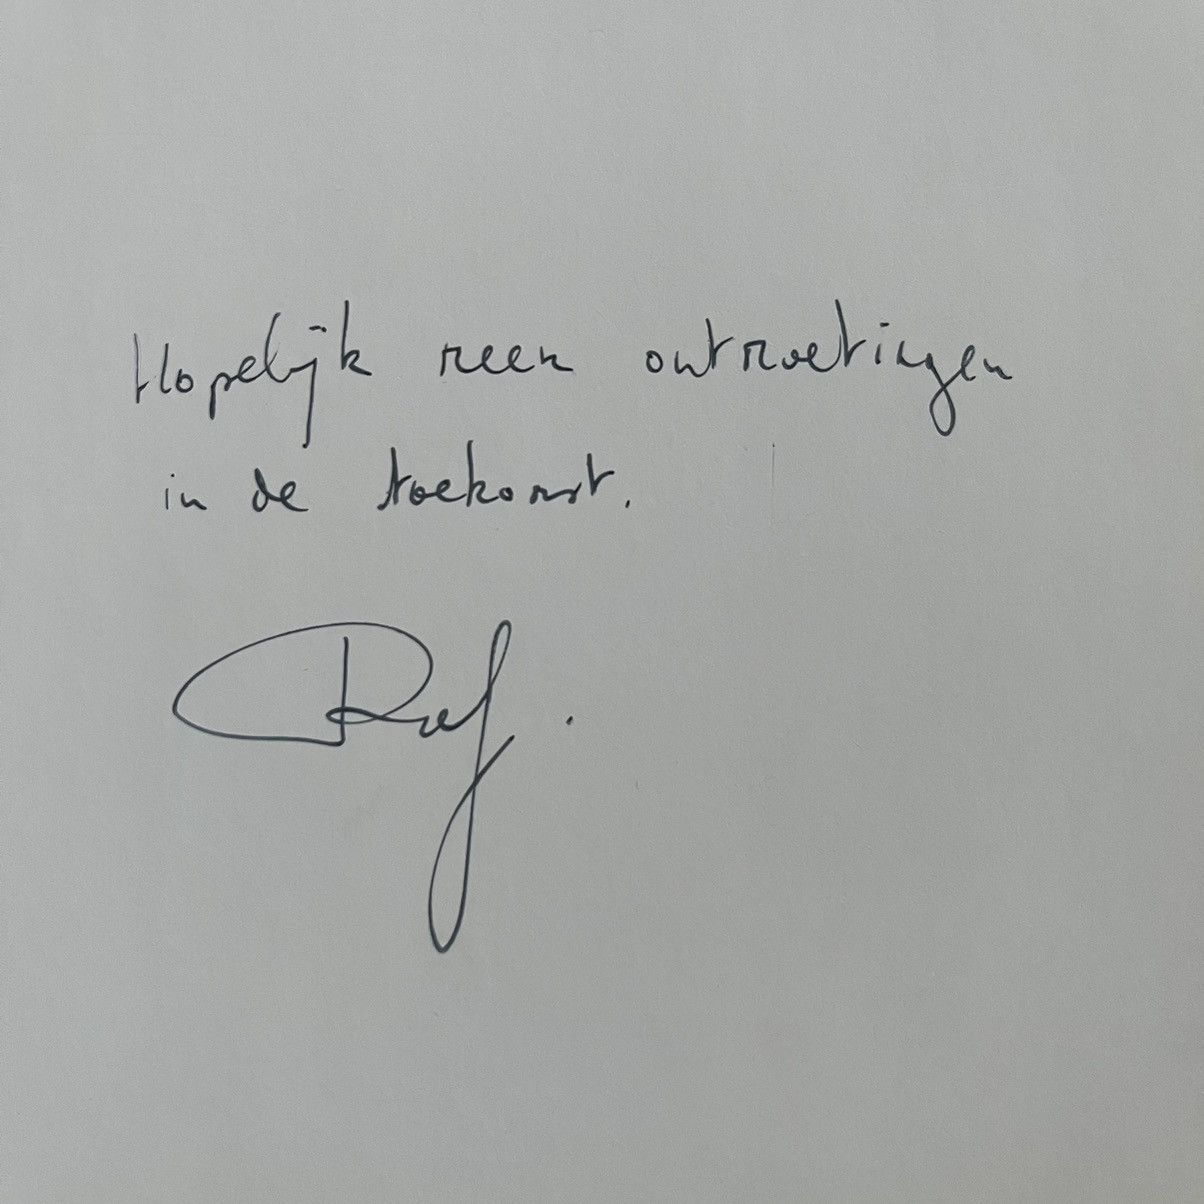 Hopelijk meer ontmoetingen
in de toekomst.
Raf.